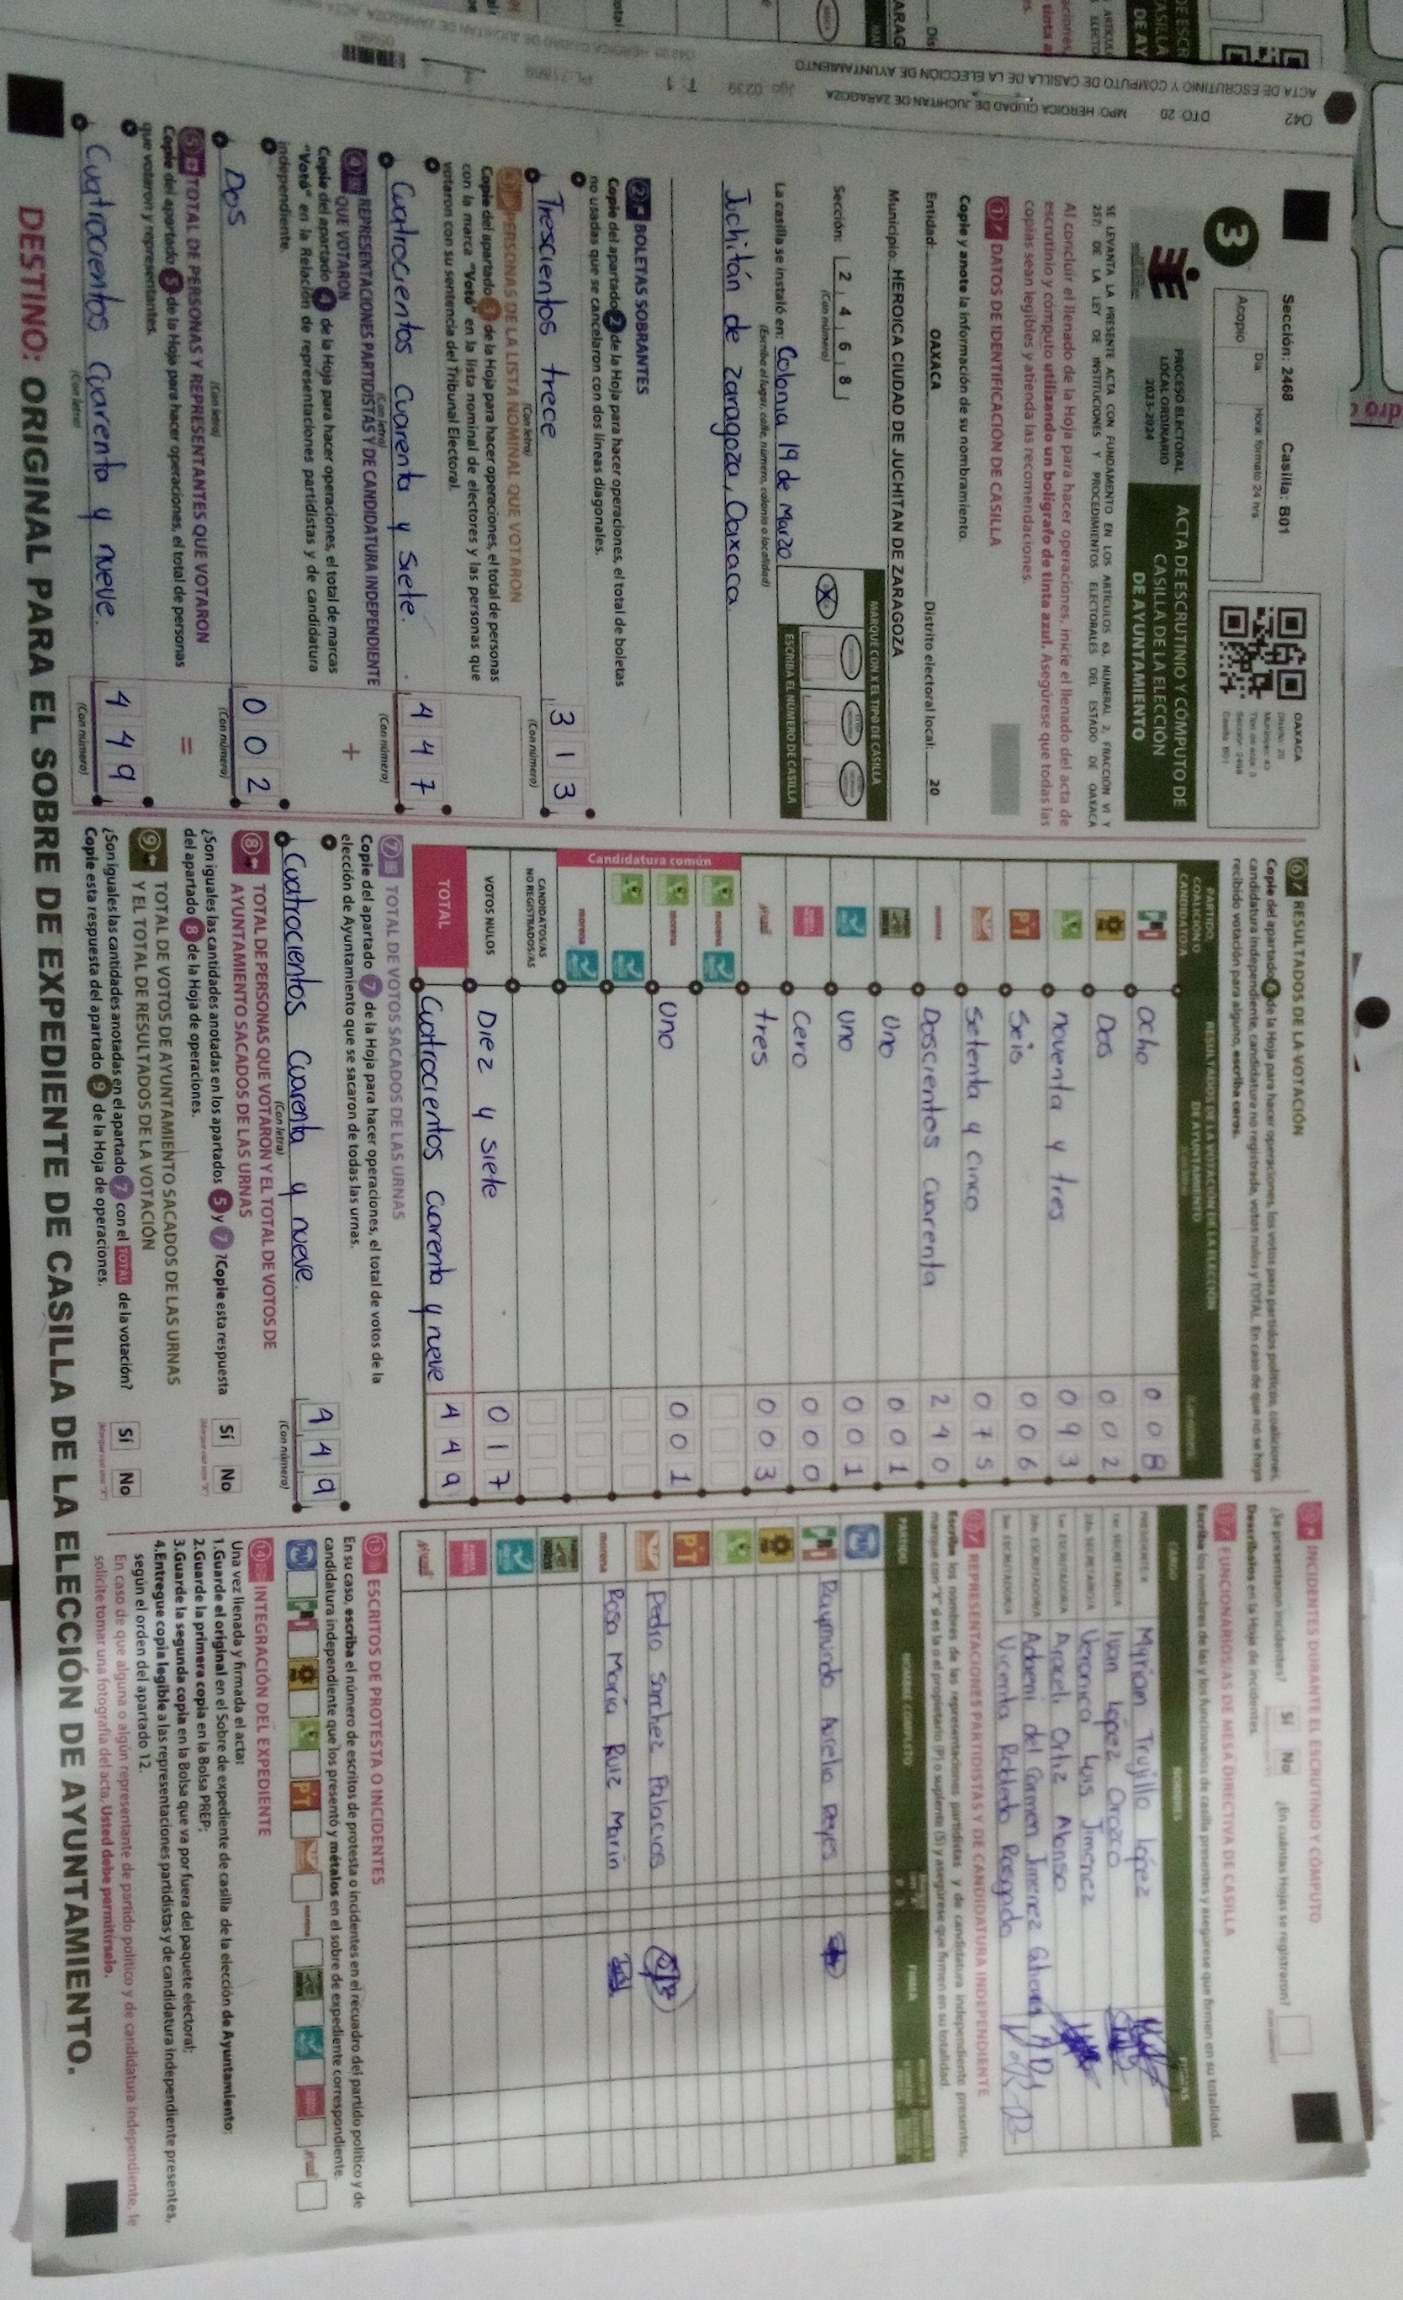 ACTA DE ESCRUTINIO Y CÓMPUTO DE CASILLA DE LA ELECCIÓN DE AYUNTAMIENTO
042 DTO: 20 MPO: HEROICA CIUDAD DE JUCHITAN DE ZARAGOZA
Sección: 2468 Casilla: B01
Día Hora: formato 24 hrs
Acopio
OAXACA
3
PROCESO ELECTORAL
LOCAL ORDINARIO
2023-2024
ACTA DE ESCRUTINIO Y CÓMPUTO DE
CASILLA DE LA ELECCIÓN
DE AYUNTAMIENTO
SE LEVANTA LA PRESENTE ACTA CON FUNDAMENTO EN LOS ARTÍCULOS 63, NUMERAL 2, FRACCIÓN VI Y
257; DE LA LEY DE INSTITUCIONES Y PROCEDIMIENTOS ELECTORALES DEL ESTADO DE OAXACA
Al concluir el llenado de la Hoja para hacer operaciones, inicie el llenado del acta de
escrutinio y cómputo utilizando un bolígrafo de tinta azul. Asegúrese que todas las
copias sean legibles y atienda las recomendaciones.
1 DATOS DE IDENTIFICACIÓN DE CASILLA
Copie y anote la información de su nombramiento.
Entidad: OAXACA Distrito electoral local: 20
Municipio: HEROICA CIUDAD DE JUCHITAN DE ZARAGOZA
Sección: 2 4 6 8
(Con número)
MARQUE CON X EL TIPO DE CASILLA
ESCRIBA EL NÚMERO DE CASILLA
La casilla se instaló en: Colonia 19 de Marzo
(Escriba el lugar, calle, número, colonia o localidad)
Juchitán de Zaragoza, Oaxaca
2 BOLETAS SOBRANTES
Copie del apartado 2 de la Hoja para hacer operaciones, el total de boletas
no usadas que se cancelaron con dos líneas diagonales.
Trescientos trece 3 1 3
(Con letra) (Con número)
3 PERSONAS DE LA LISTA NOMINAL QUE VOTARON
Copie del apartado 3 de la Hoja para hacer operaciones, el total de personas
con la marca "Votó" en la lista nominal de electores y las personas que
votaron con su sentencia del Tribunal Electoral.
Cuatrocientos Cuarenta y Siete. 4 4 7
(Con letra) (Con número)
4 REPRESENTACIONES PARTIDISTAS Y DE CANDIDATURA INDEPENDIENTE
QUE VOTARON +
Copie del apartado 4 de la Hoja para hacer operaciones, el total de marcas
"Votó" en la Relación de representaciones partidistas y de candidatura
independiente.
Dos 0 0 2
(Con letra) (Con número)
5 TOTAL DE PERSONAS Y REPRESENTANTES QUE VOTARON =
Copie del apartado 5 de la Hoja para hacer operaciones, el total de personas
que votaron y representantes.
Cuatrocientos Cuarenta y nueve. 4 4 9
(Con letra) (Con número)
6 RESULTADOS DE LA VOTACIÓN
Copie del apartado 6 de la Hoja para hacer operaciones, los votos para partidos políticos, coaliciones,
candidatura independiente, candidatura no registrada, votos nulos y TOTAL. En caso de que no se haya
recibido votación para alguno, escriba ceros.
PARTIDO, COALICIÓN O CANDIDATO/A
RESULTADOS DE LA VOTACIÓN DE LA ELECCIÓN DE AYUNTAMIENTO
ocho 0 0 8
Dos 0 0 2
noventa y tres 0 9 3
PT Seis 0 0 6
Setenta y cinco 0 7 5
morena Doscientos cuarenta 2 4 0
Uno 0 0 1
uno 0 0 1
Cero 0 0 0
tres 0 0 3
Candidatura común
morena
morena uno 0 0 1
morena
CANDIDATOS/AS
NO REGISTRADOS/AS
VOTOS NULOS Diez y siete 0 1 7
TOTAL Cuatrocientos cuarenta y nueve 4 4 9
7 TOTAL DE VOTOS SACADOS DE LAS URNAS
Copie del apartado 7 de la Hoja para hacer operaciones, el total de votos de la
elección de Ayuntamiento que se sacaron de todas las urnas.
Cuatrocientos Cuarenta y nueve. 4 4 9
(Con letra) (Con número)
8 TOTAL DE PERSONAS QUE VOTARON Y EL TOTAL DE VOTOS DE
AYUNTAMIENTO SACADOS DE LAS URNAS
¿Son iguales las cantidades anotadas en los apartados 5 y 7 ?Copie esta respuesta
del apartado 8 de la Hoja de operaciones. Sí No
9 TOTAL DE VOTOS DE AYUNTAMIENTO SACADOS DE LAS URNAS
Y EL TOTAL DE RESULTADOS DE LA VOTACIÓN
¿Son iguales las cantidades anotadas en el apartado 7 con el TOTAL de la votación? Sí No
Copie esta respuesta del apartado 9 de la Hoja de operaciones.
INCIDENTES DURANTE EL ESCRUTINIO Y CÓMPUTO
¿Se presentaron incidentes? Sí No ¿En cuántas Hojas se registraron?
Descríbalos en la Hoja de incidentes.
FUNCIONARIOS/AS DE MESA DIRECTIVA DE CASILLA
Escriba los nombres de las y los funcionarios de casilla presentes y asegúrese que firmen en su totalidad.
CARGO NOMBRES FIRMAS
Myrian Trujillo López
Ivan López Orozco
Veronica Luis Jimenez
Araceli Ortiz Alonso
Acheni del Carmen Jimenez
Vicenta Robledo Rasgado
REPRESENTACIONES PARTIDISTAS Y DE CANDIDATURA INDEPENDIENTE
Escriba los nombres de las representaciones partidistas y de candidatura independiente presentes,
marque con "X" si es la o el propietario (P) o suplente (S) y asegúrese que firmen en su totalidad.
PARTIDO NOMBRE COMPLETO FIRMA
PAN Raymundo Aurelio Reyes
PT
Pedro Sanchez Palacios
morena Rosa María Ruiz Marin
13 ESCRITOS DE PROTESTA O INCIDENTES
En su caso, escriba el número de escritos de protesta o incidentes en el recuadro del partido político y de
candidatura independiente que los presentó y métalos en el sobre de expediente correspondiente.
14 INTEGRACIÓN DEL EXPEDIENTE
Una vez llenada y firmada el acta:
1.Guarde el original en el Sobre de expediente de casilla de la elección de Ayuntamiento;
2.Guarde la primera copia en la Bolsa PREP;
3.Guarde la segunda copia en la Bolsa que va por fuera del paquete electoral;
4.Entregue copia legible a las representaciones partidistas y de candidatura independiente presentes,
según el orden del apartado 12.
En caso de que alguna o algún representante de partido político y de candidatura independiente, le
solicite tomar una fotografía del acta, Usted debe permitírselo.
DESTINO: ORIGINAL PARA EL SOBRE DE EXPEDIENTE DE CASILLA DE LA ELECCIÓN DE AYUNTAMIENTO.